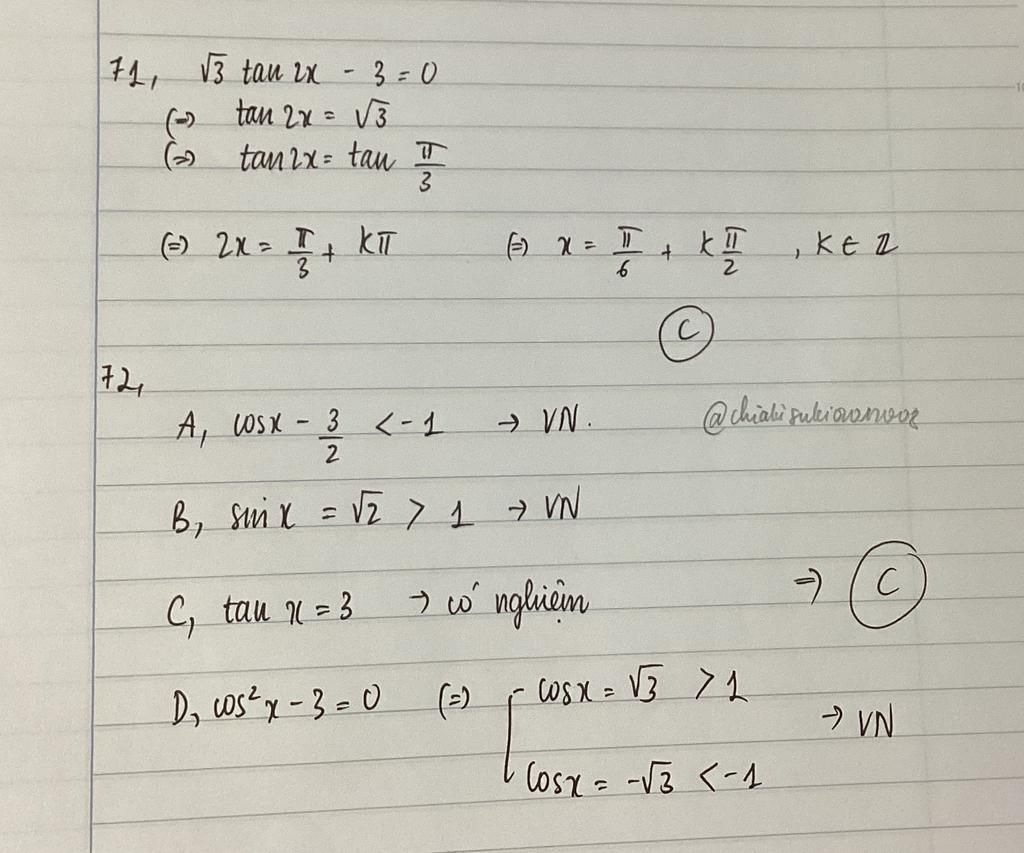 71, √3 tan 2x - 3 = 0
(=) tan 2x = √3
(=) tan 2x = tan π/3
(=) 2x = π/3 + kπ (=) x = π/6 + k π/2 , k ∈ Z
C
72,
A, cosx - 3/2 < -1 → VN.
B, sin x = √2 > 1 → VN
C, tan x = 3 → có nghiệm => C
D, cos² x - 3 = 0 (=) cosx = √3 > 1
→ VN
cosx = -√3 < -1